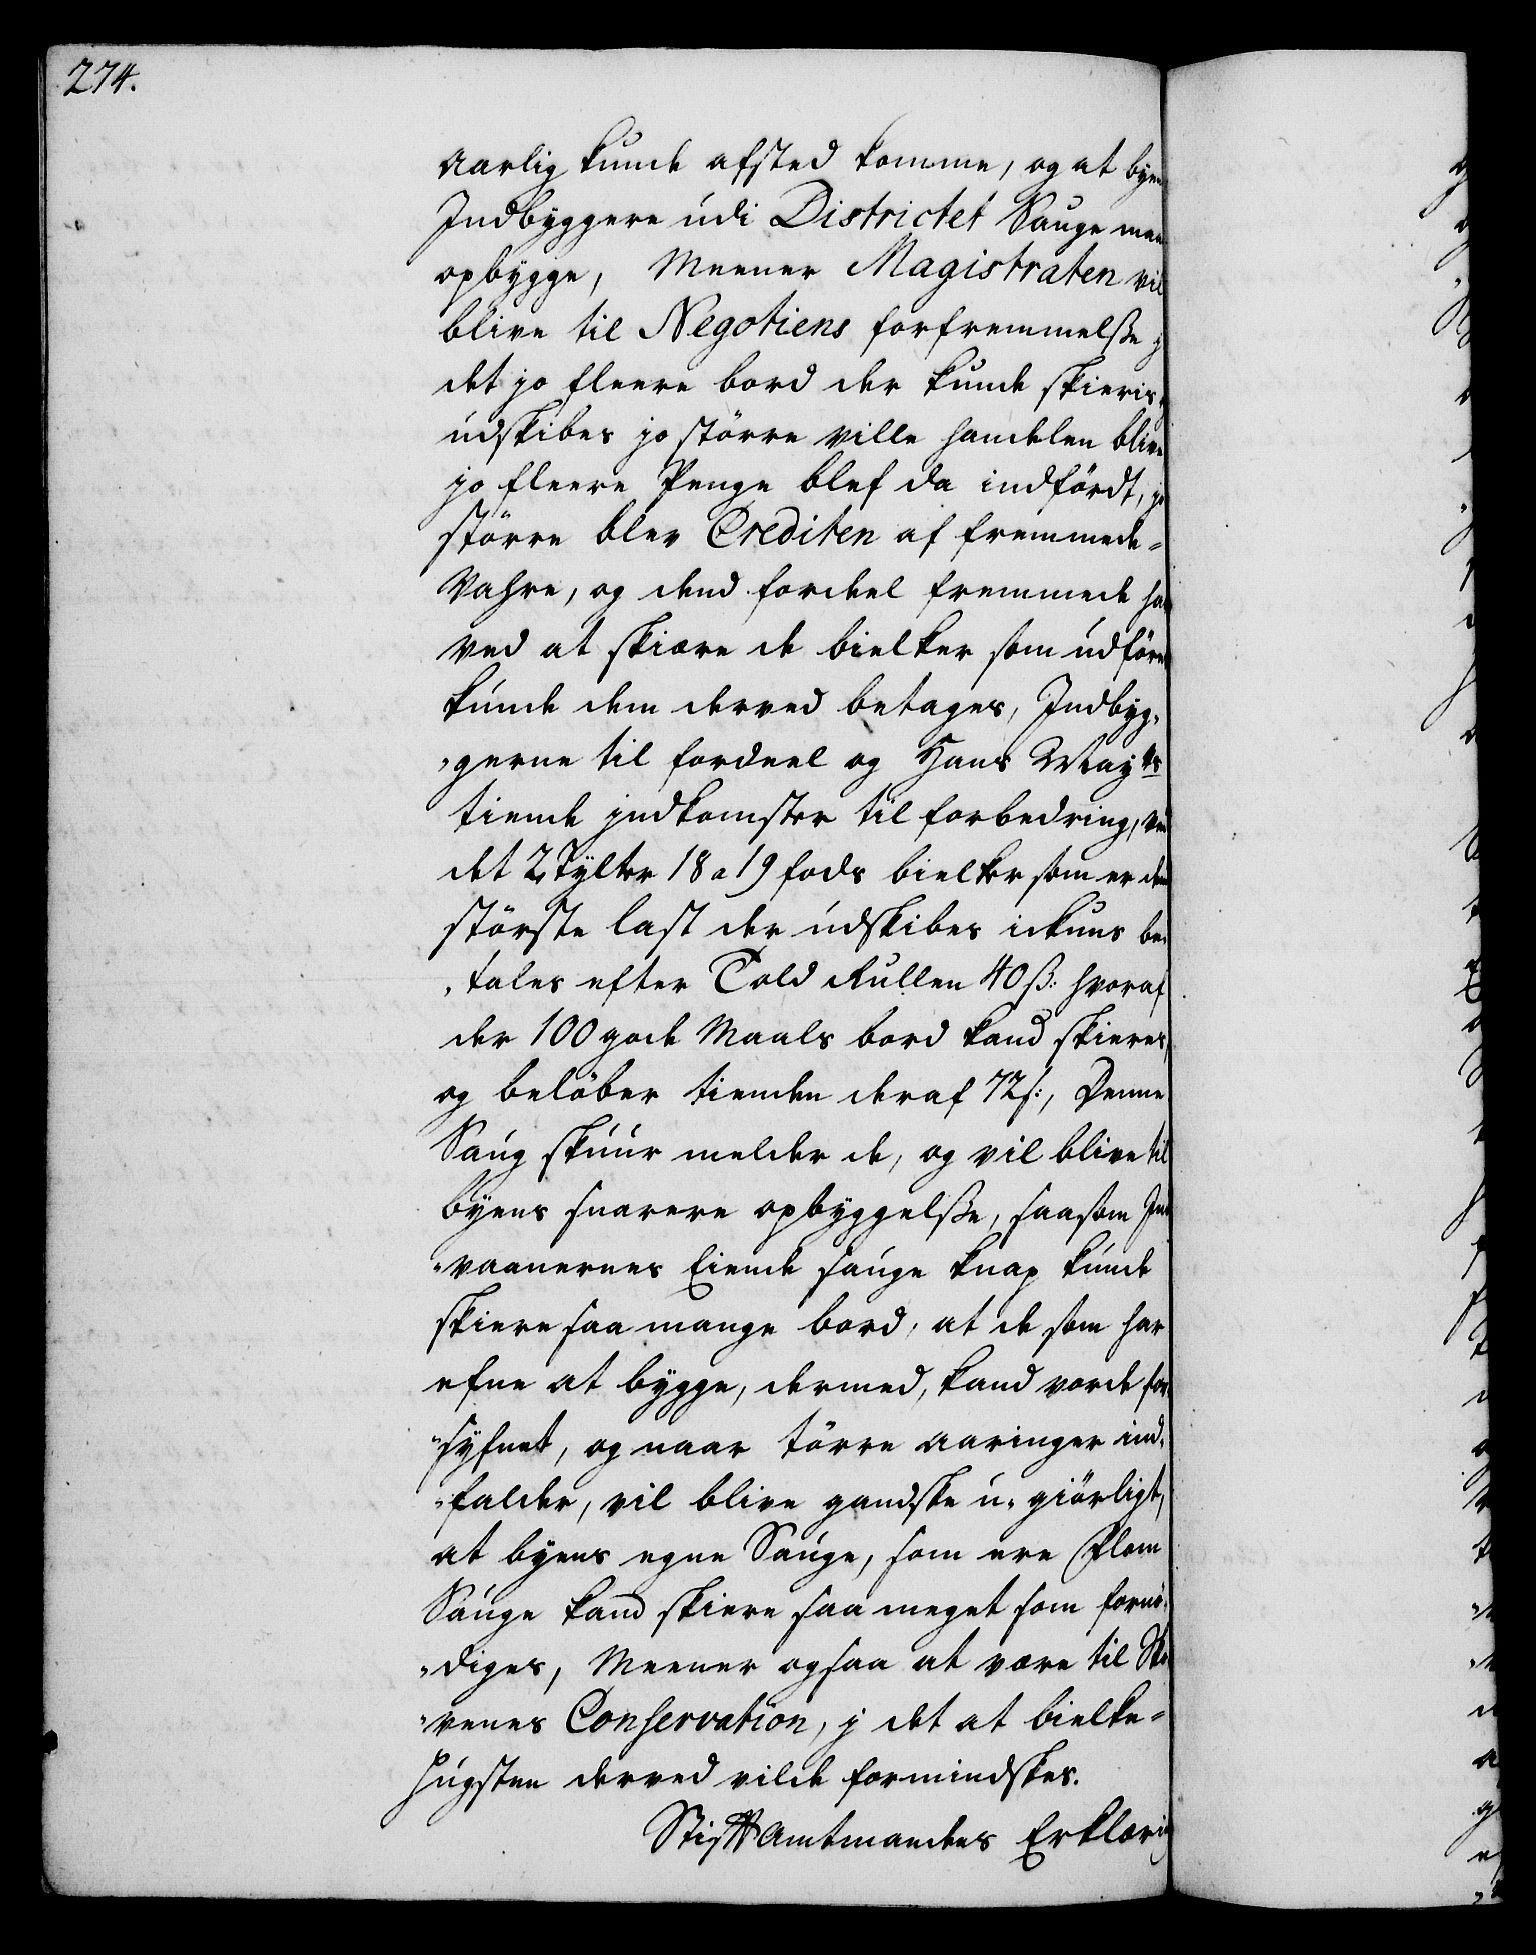 274.
aarlig kunde afsted komme, og at byens
Indbyggere udi Districtet Sauge maae
opbygge, Meener Magistraten vil
blive til Negotiens forfremmelße j
det jo fleere bord der kunde skieris og
udskibes jo större ville handelen blive
jo fleere Penge blef da indfördt, jo
större blev Crediten af fremmede-
Vahre, og dend fordeel fremmede har
ved at skiære de bielker som udföres
kunde dem derved betages, Indbyg,
"gerne til fordeel og Hans Mayts
tiende jndkomster til forbedring, ved
det 2 Tylter 18 a 19 fods bielker som er den
störste last der udskibes ickuns be,
"tales efter Told Rullen 40 ß: hvoraf
der 100 gode Maals bord kand skieres,
og belöber tienden deraf 72 s:, Denne
Saug skuur melder de, og vil blive til
byens snarere opbyggelße, saasom Ind
"vaanernes Eiende sauge knap kunde
skiere saa mange bord, at de som har
efne at bygge, dermed, kand vorde for,
"syfnet, og naar törre aaringer ind,
"falder, vil blive gandske u, giörligt,
at byens egne Sauge, som ere Flom
Sauge kand skiere saa meget som fornö,
"diges, Meener ogsaa at være til Sko
"venes Conservation, j det at bielke-
hugsten derved vilde formindskes.
Stifft Amtmandens Erklæring